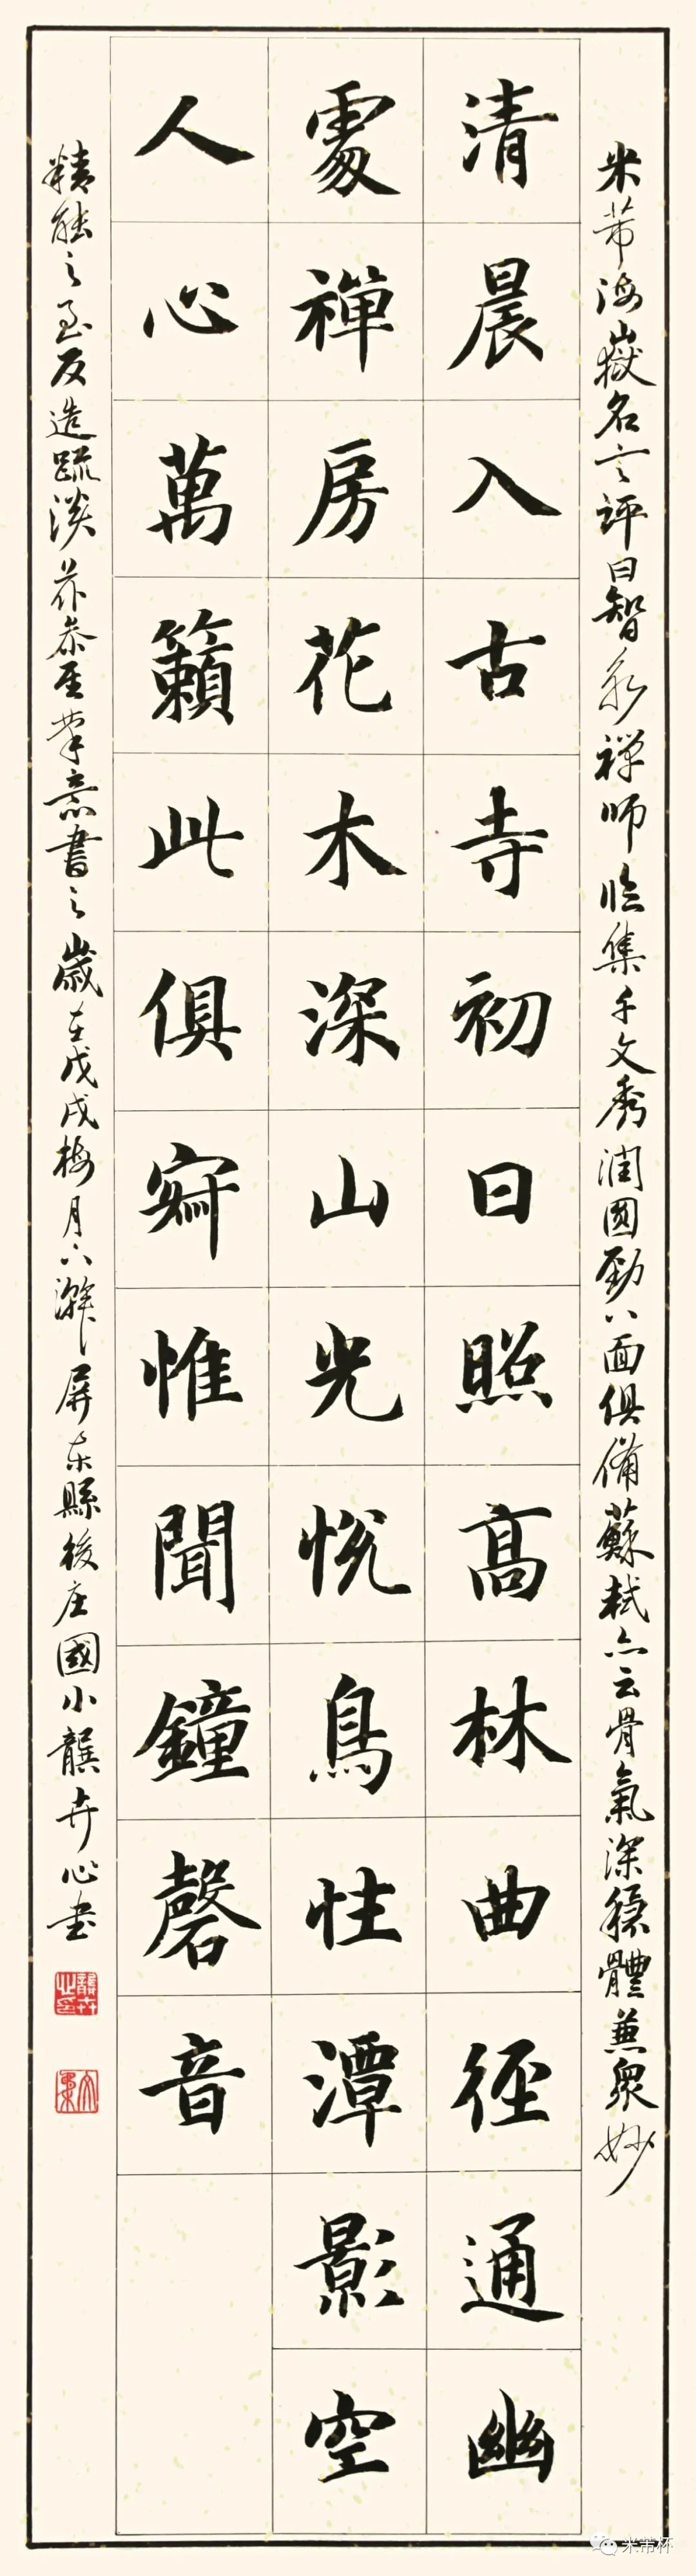 米芾海嶽名言評曰智永禪師臨集千文秀潤圓勁八面俱備蘇軾亦云骨氣深穩體兼衆妙
清晨入古寺初日照高林曲徑通幽
處禪房花木深山光悅鳥性潭影空
人心萬籟此俱寂惟聞鐘磬音
精能之至反造疏淡筆意書之歲在戊戌梅月下澣屏東縣後庄國小龔卉心書
米芾杯